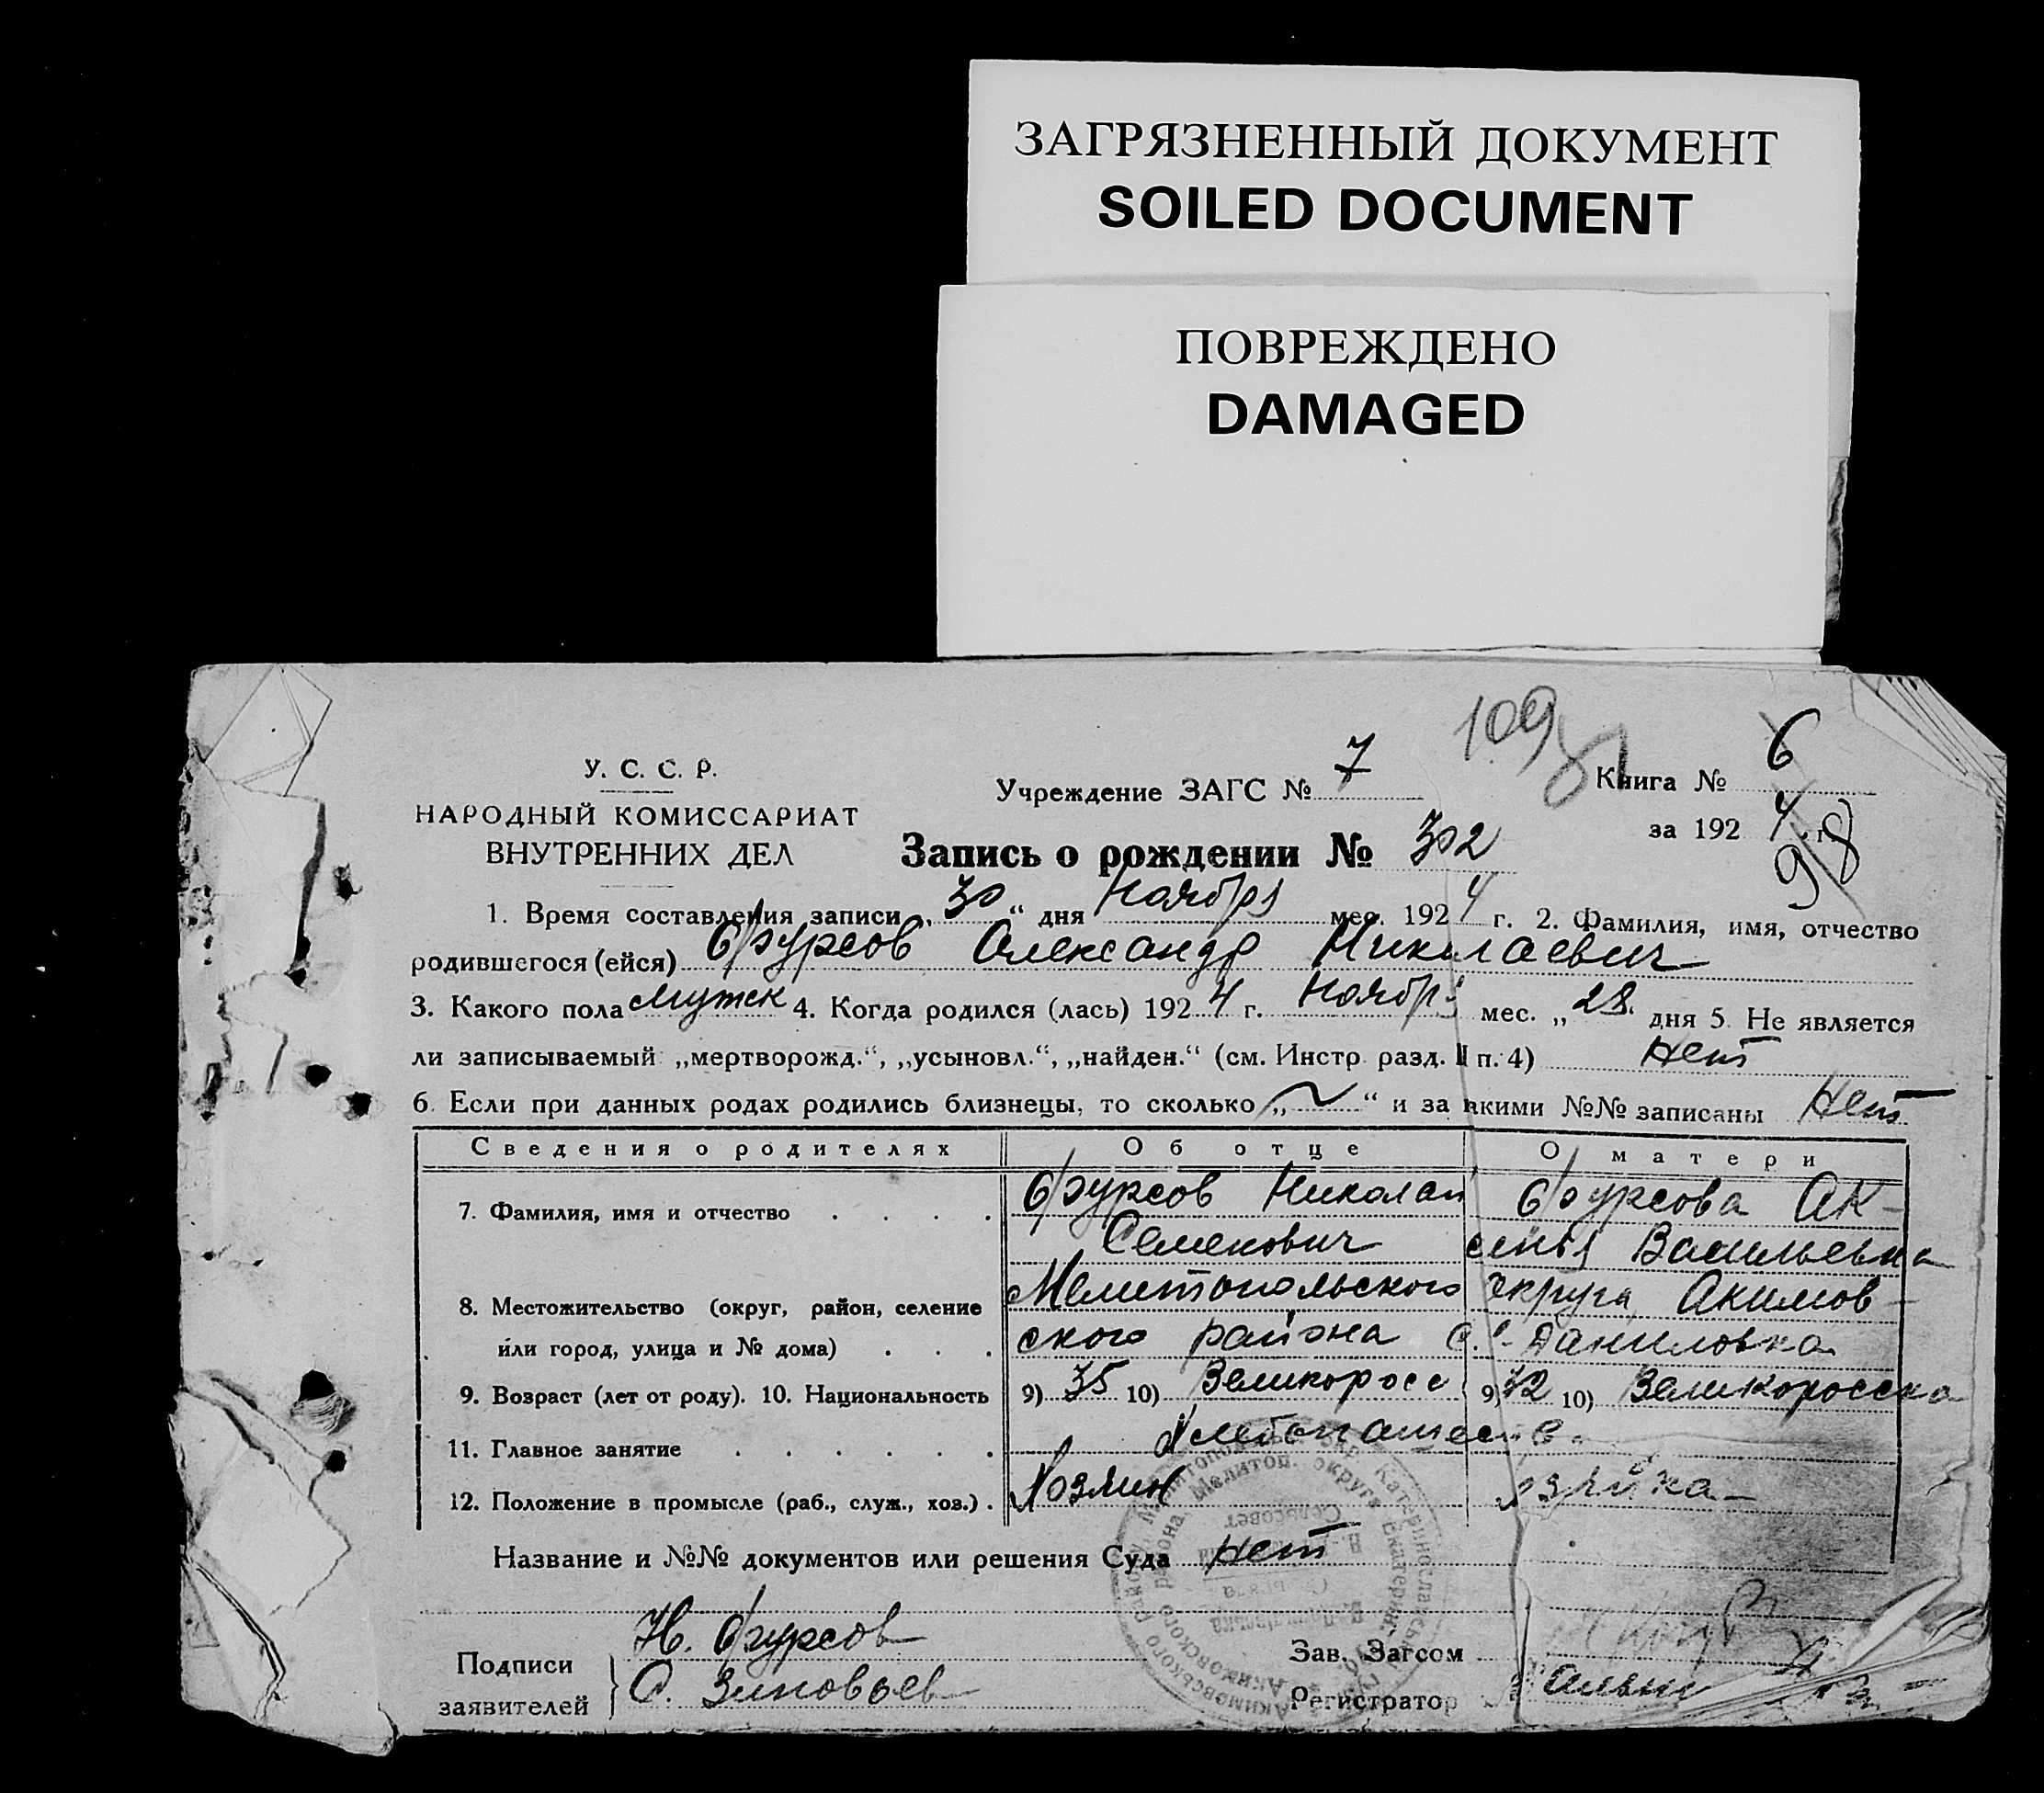 ЗАГРЯЗНЕННЫЙ ДОКУМЕНТ
SOILED DOCUMENT
ПОВРЕЖДЕНО
DAMAGED
109
У. С. С. Р.
НАРОДНЫЙ КОМИССАРИАТ
ВНУТРЕННИХ ДЕЛ
Учреждение ЗАГС № 7
Книга № 6
за 192 4 г.
98
Запись о рождении № 302
1. Время составления записи „ 30 “ дня Ноября мес. 192 4 г. 2. Фамилия, имя, отчество
родившегося (ейся) Фурсов Александр Николаевич
3. Какого пола мужск 4. Когда родился (лась) 192 4 г. Ноября мес. „ 28 дня 5. Не является
ли записываемый „мертворожд.“, „усыновл.“, „найден.“ (см. Инстр. разд. II п. 4) Нет
6. Если при данных родах родились близнецы, то сколько „ ~ “ и за какими №№ записаны Нет
Сведения о родителях Об отце О матери
7. Фамилия, имя и отчество Фурсов Николай Фурсова Ак-
Семенович синья Васильевна
8. Местожительство (округ, район, селение Мелитопольского округа Акимов-
или город, улица и № дома) ского района с. Даниловка
9. Возраст (лет от роду). 10. Национальность 9) 35 10) Великоросс 9) 32 10) Великоросска
11. Главное занятие Хлебопашество
12. Положение в промысле (раб., служ., хоз.) Хозяин Хозяйка
Название и №№ документов или решения Суда Нет
Подписи заявителей
Н. Фурсов
С. Зиновьев
Зав. Загсом
Регистратор